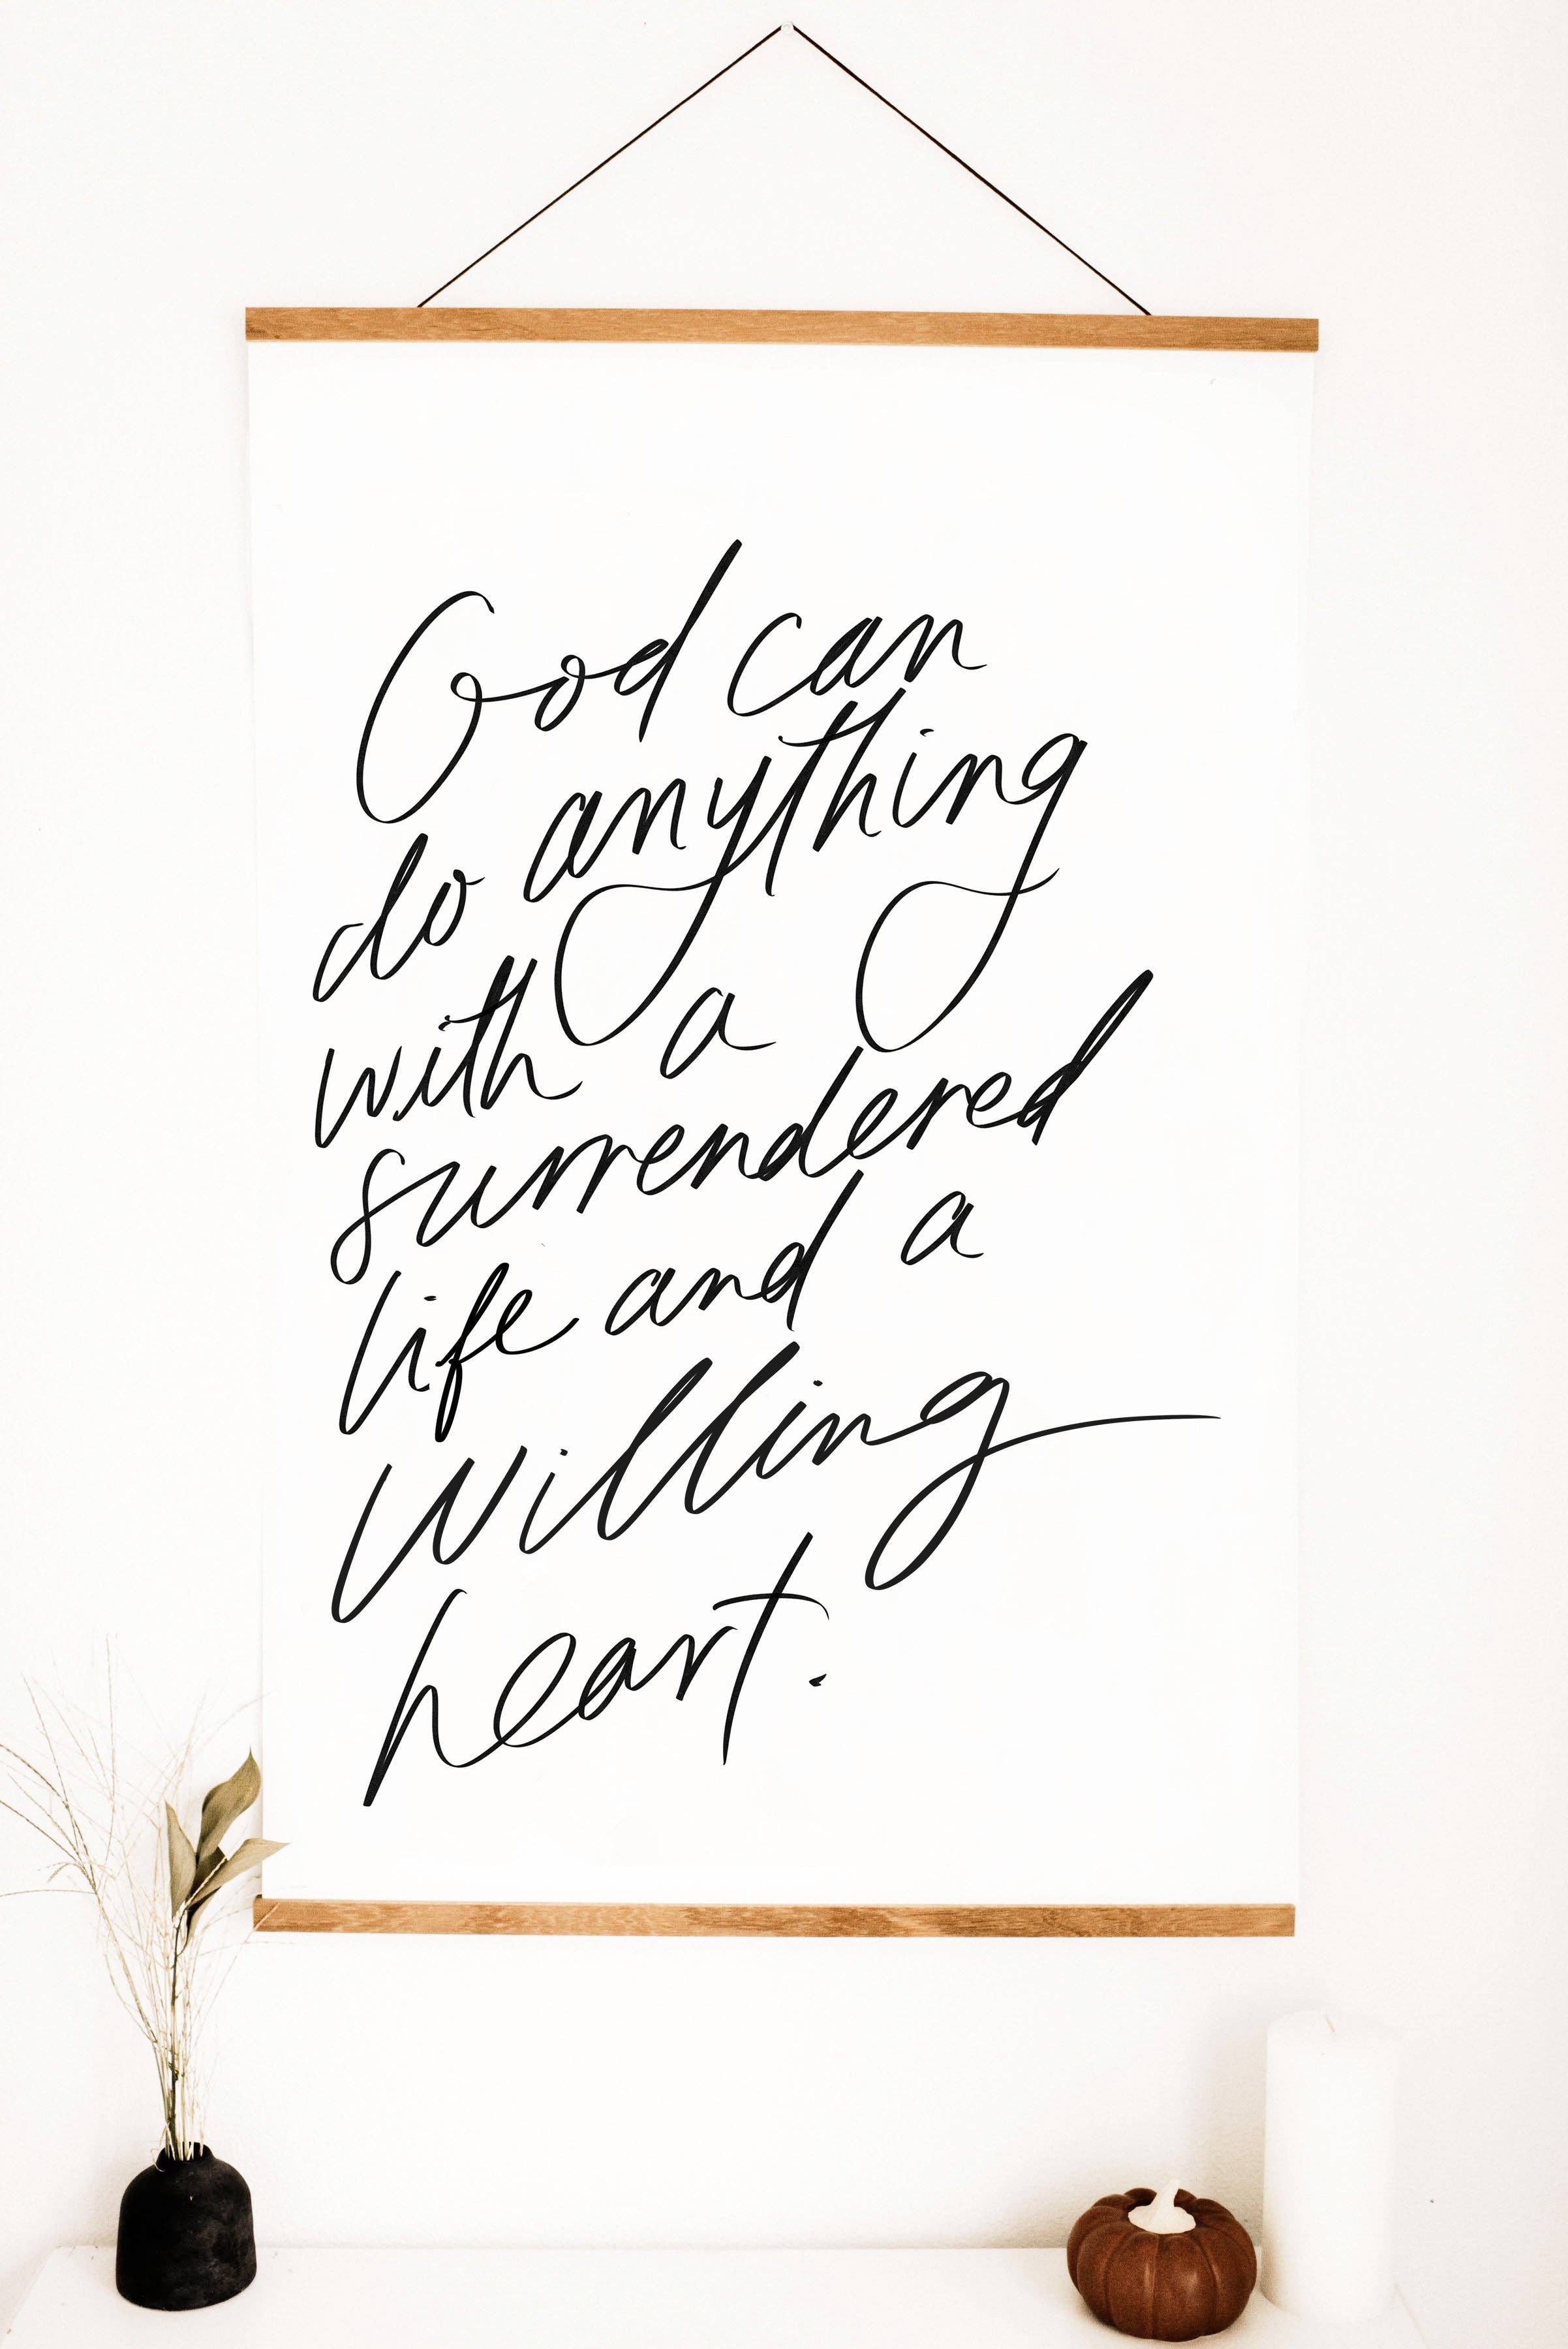 God can
do anything
with a
surrendered
life and a
willing
heart.